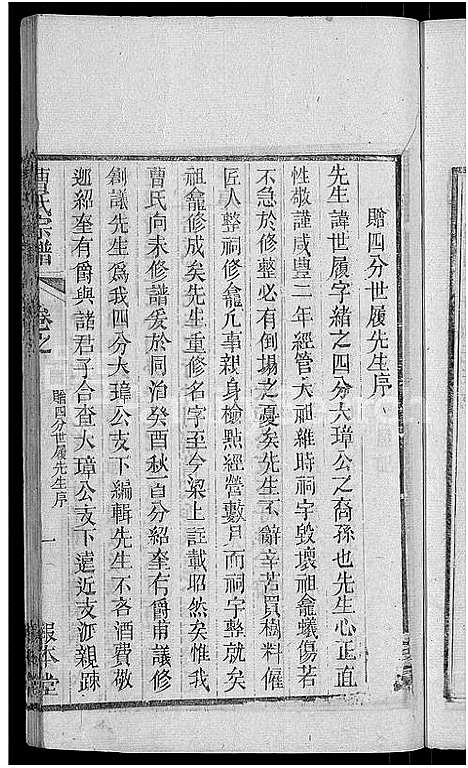 贈四分世履先生序
先生諱世履字緒之四分大璋公之裔孫也先生心正直
性敬謹咸豐二年經管大祖維時祠宇毀壞祖龕蟻傷若
不急於修整必有倒塌之憂矣先生不辭辛苦買樹料僱
匠人整祠修龕凡事親身檢點經營數月而祠宇整就矣
祖龕修成矣先生重修名字至今梁上註載昭然矣惟我
曹氏向未修譜爰於同治癸酉秋百分紹奎有爵甫議修
創議先生爲我四分大璋公支下編輯先生不吝酒費敬
邀紹奎有爵與諸君子合查大璋公支下遠近支派親疎
曹氏宗譜
卷之
贈四分世履先生序
一
報本堂